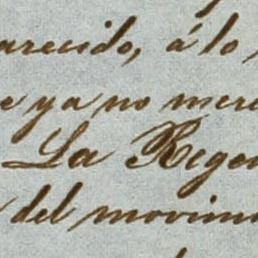 arecido, á lo
e ya no mere
La Regen
del movim